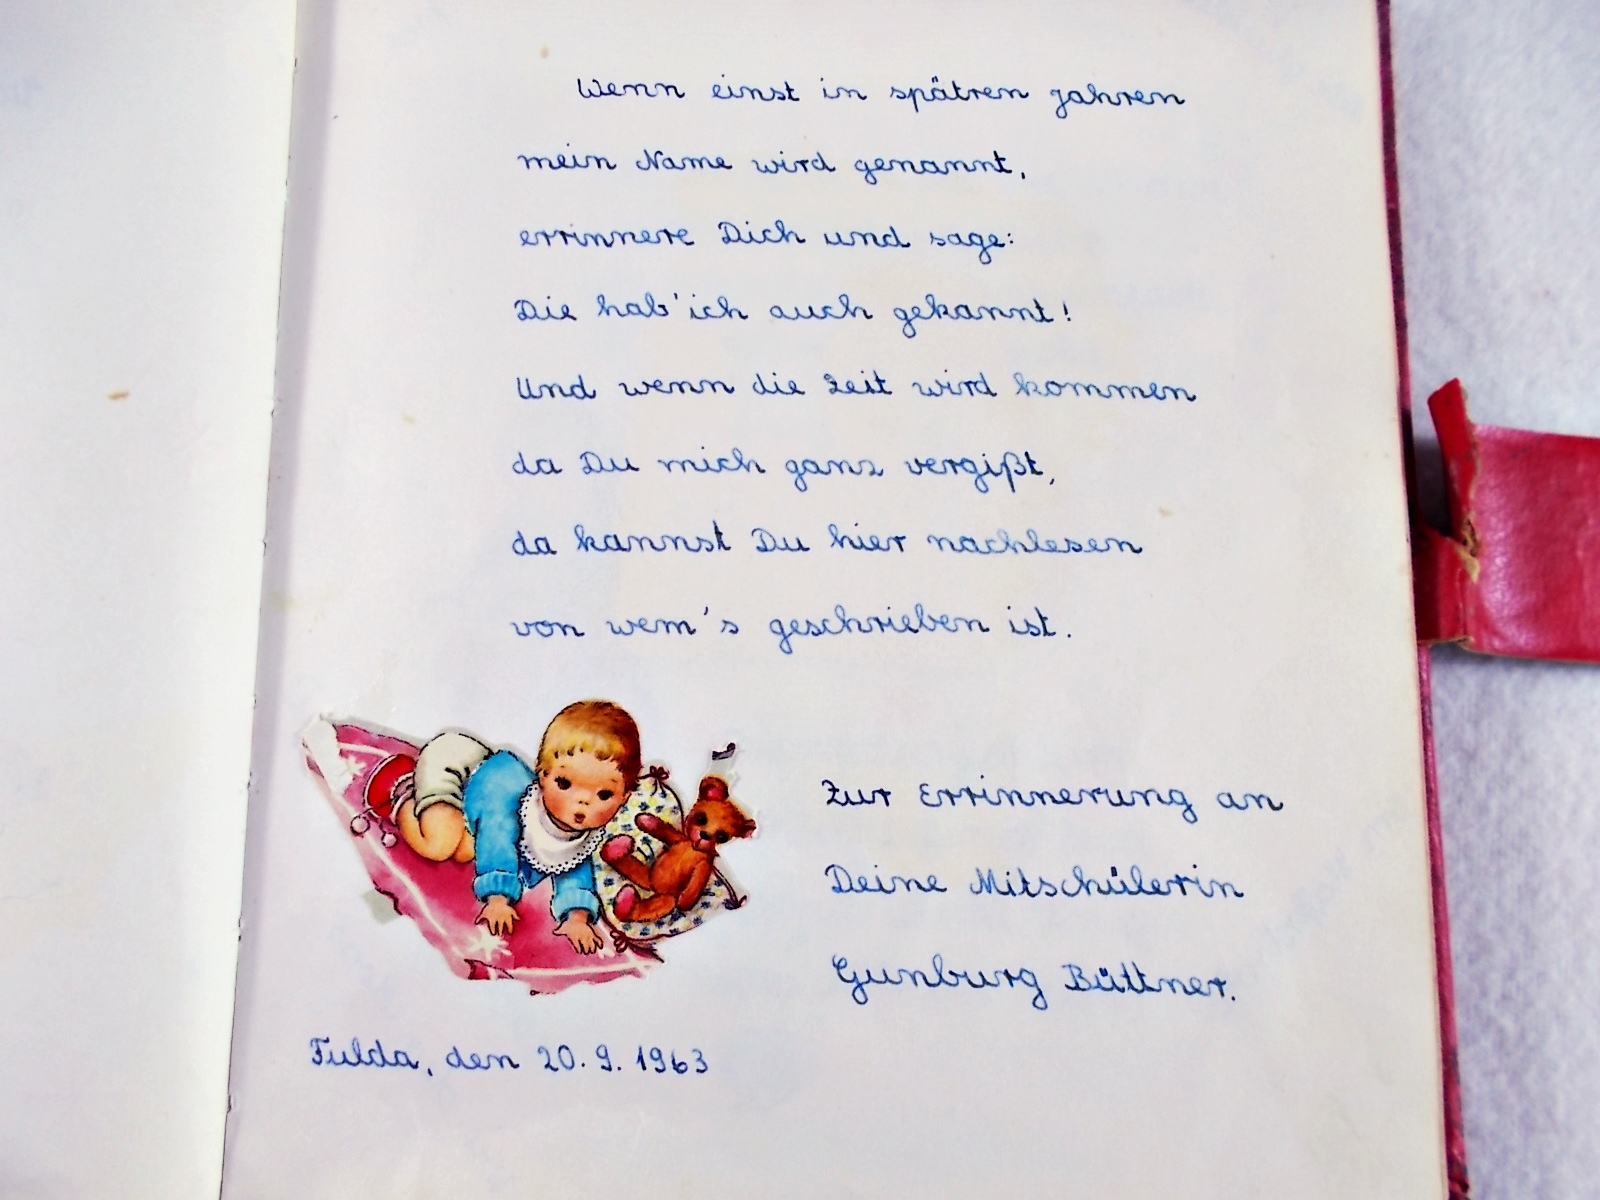 Wenn einst in spätren Jahren
mein Name wird genannt,
errinnere Dich und sage:
Die hab' ich auch gekannt!
Und wenn die Zeit wird kommen
da Du mich ganz vergißt,
da kannst Du hier nachlesen
von wem's geschrieben ist.
Zur Errinnerung an
Deine Mitschülerin
Gunburg Büttner.
Fulda, den 20.9.1963